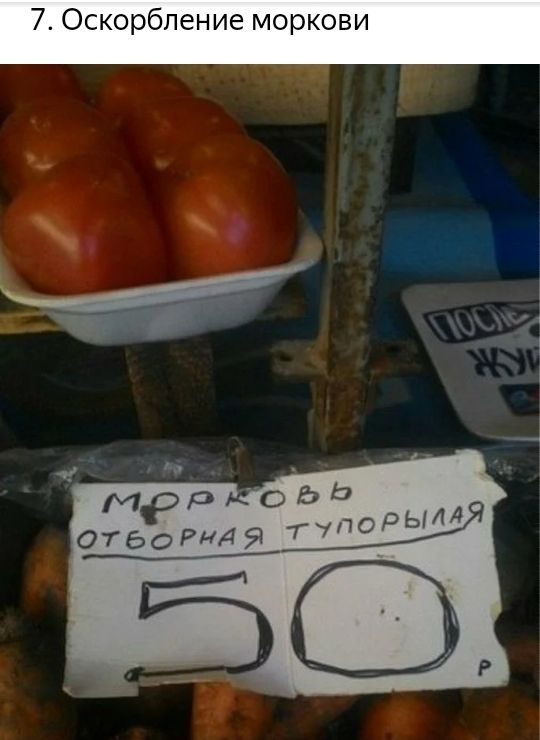 7. Оскорбление моркови
ПОСЛЕ
МОРКОВЬ
ОТБОРНАЯ ТУПОРЫЛАЯ
50 Р